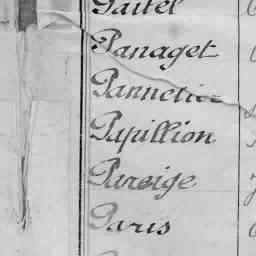 Panaget
Pannetier
Papillion
Paroige
Paris